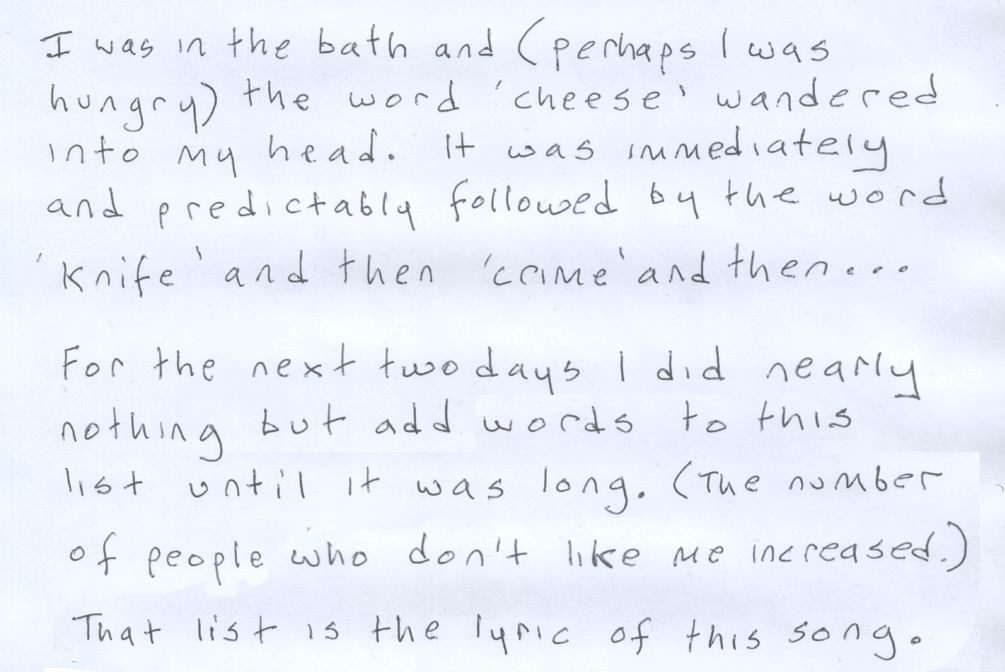 I was in the bath and (perhaps I was
hungry) the word 'cheese' wandered
into my head. It was immediately
and predictably followed by the word
'knife' and then 'crime' and then...
For the next two days I did nearly
nothing but add words to this
list until it was long. (The number
of people who don't like me increased.)
That list is the lyric of this song.